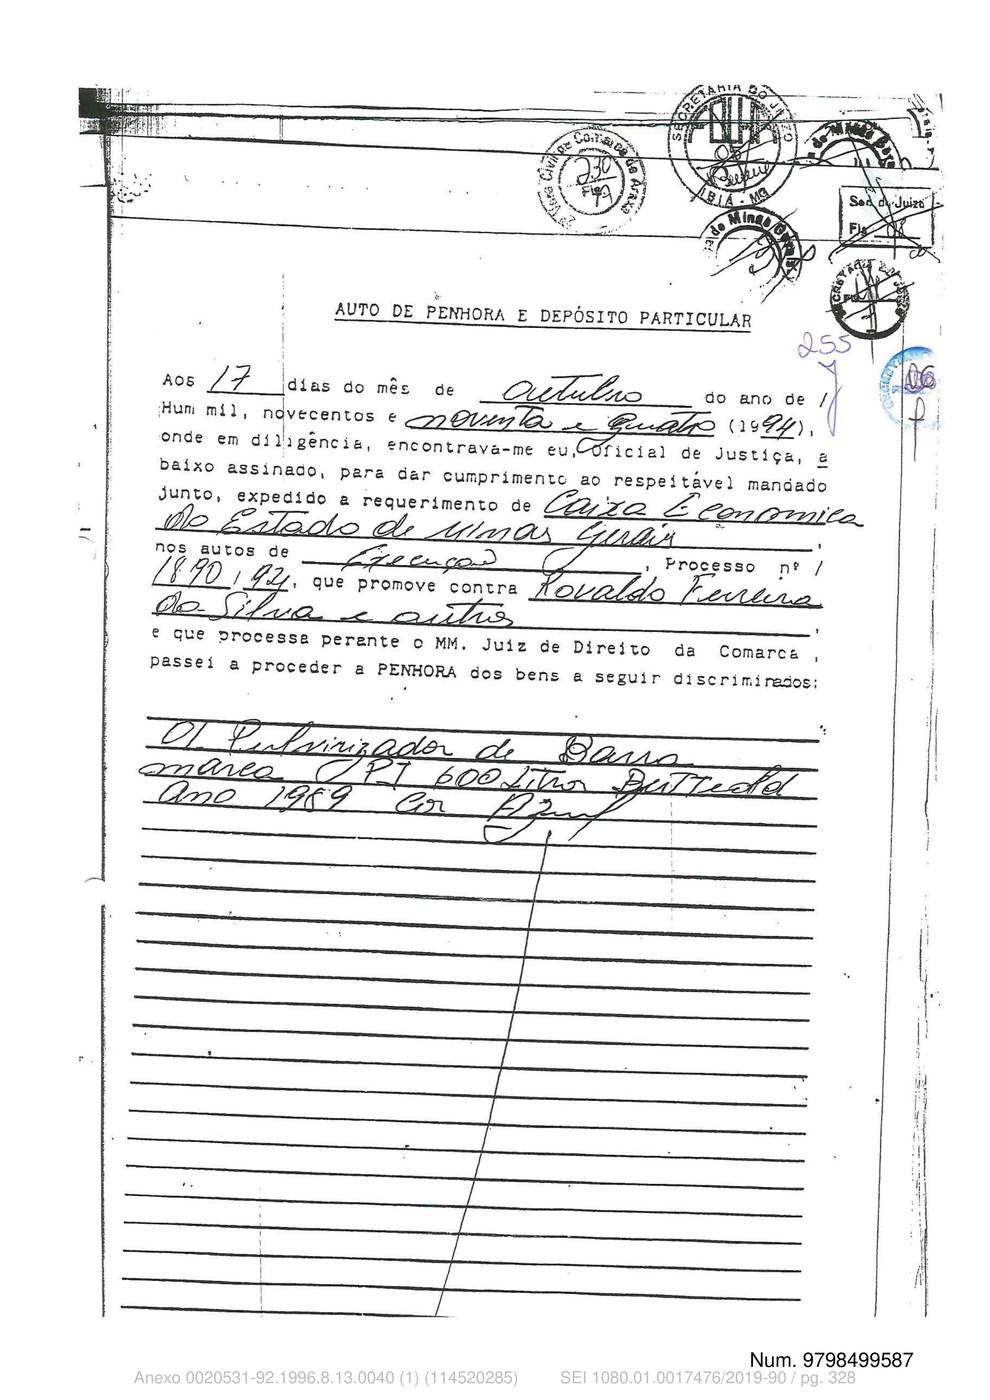 SECRETARIA DO JUIZO
IBIÁ - MG
2ª Vara Cível da Comarca de Araxá
230
Fls
Minas Gerais
de Minas Gerais
Sec. de Juizo
Fls
AUTO DE PENHORA E DEPÓSITO PARTICULAR
255
Aos 17 dias do mês de outubro do ano de /
Hum mil, novecentos e noventa e quatro (1994),
onde em diligência, encontrava-me eu, Oficial de Justiça, a
baixo assinado, para dar cumprimento ao respeitável mandado
junto, expedido a requerimento de Caixa Economica
do Estado de Minas Gerais,
nos autos de Execução, Processo nº /
1890/92, que promove contra Rovaldo Ferreira
da Silva e outros,
e que processa perante o MM. Juiz de Direito da Comarca,
passei a proceder a PENHORA dos bens a seguir discriminados:
01 Pulvirizador de Barra
marca 600 Litros
Ano 1989 Cor Azul
Num. 9798499587
Anexo 0020531-92.1996.8.13.0040 (1) (114520285) SEI 1080.01.0017476/2019-90 / pg. 328